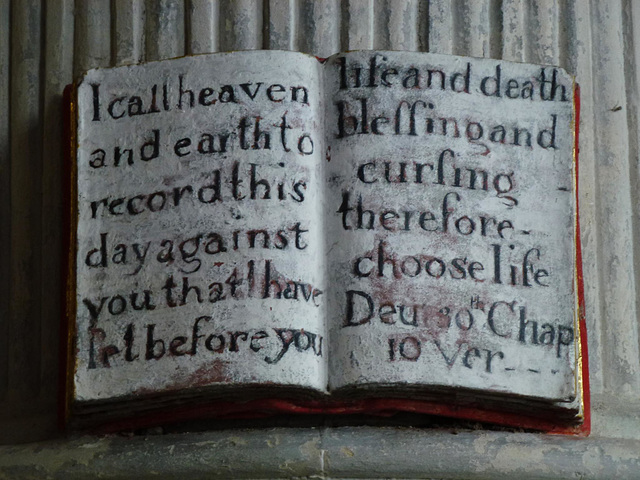 I call heaven
and earth to
record this
day against
you that I have
ſet before you
life and death
bleſſing and
curſing
therefore
choose life
Deu 30th Chap
10 Ver